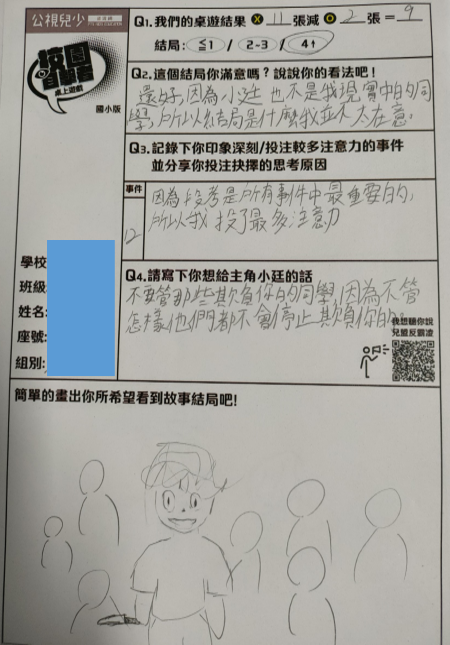 公視兒少
校園
旁觀者
桌上遊戲
國小版
Q1.我們的桌遊結果 X 11 張減 O 2 張 = 9
結局: ≦1 / 2-3 / 4↑
Q2.這個結局你滿意嗎？說說你的看法吧！
還好，因為小廷也不是我現實中的同
學，所以結局是什麼我並不太在意.
Q3.記錄下你印象深刻/投注較多注意力的事件
並分享你投注抉擇的思考原因
事件
12
因為段考是所有事件中最重要的,
所以我投了最多注意力
學校
班級
姓名:
座號:
組別:
Q4.請寫下你想給主角小廷的話
不要管那些欺負你的同學,因為不管
怎樣他們都不會停止欺負你的。
我想聽你說
兒盟反霸凌
簡單的畫出你所希望看到故事結局吧!